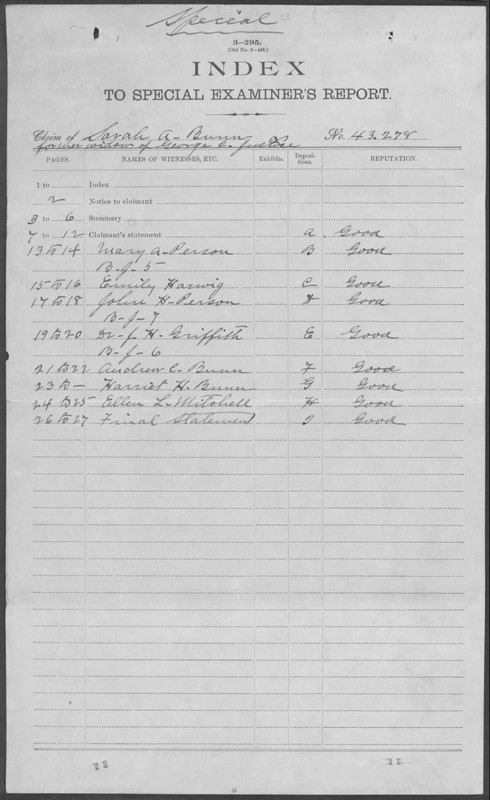 Special
3—295.
(Old No. 3—446.)
INDEX
TO SPECIAL EXAMINER'S REPORT.
Claim of Sarah A. Bunn No. 43.278
former widow of George E.
PAGES. NAMES OF WITNESSES, ETC. Exhibits. Deposi- tions. REPUTATION.
1 to Index
2 Notice to claimant
3 to 6 Summary
7 to 12 Claimant's statement A Good
13 to 14 Mary A. Person B Good
B-J-5
15 to 16 Emily Harwig C Good
17 to 18 John H. Person D Good
B-J-7
19 to 20 Dr. J. H. Griffith E Good
B-J-6
21 to 22 Andrew C. Bunn F Good
23 to — Harriet H. Bunn G Good
24 to 25 Ellen L. Mitchell H Good
26 to 27 Final Statement I Good